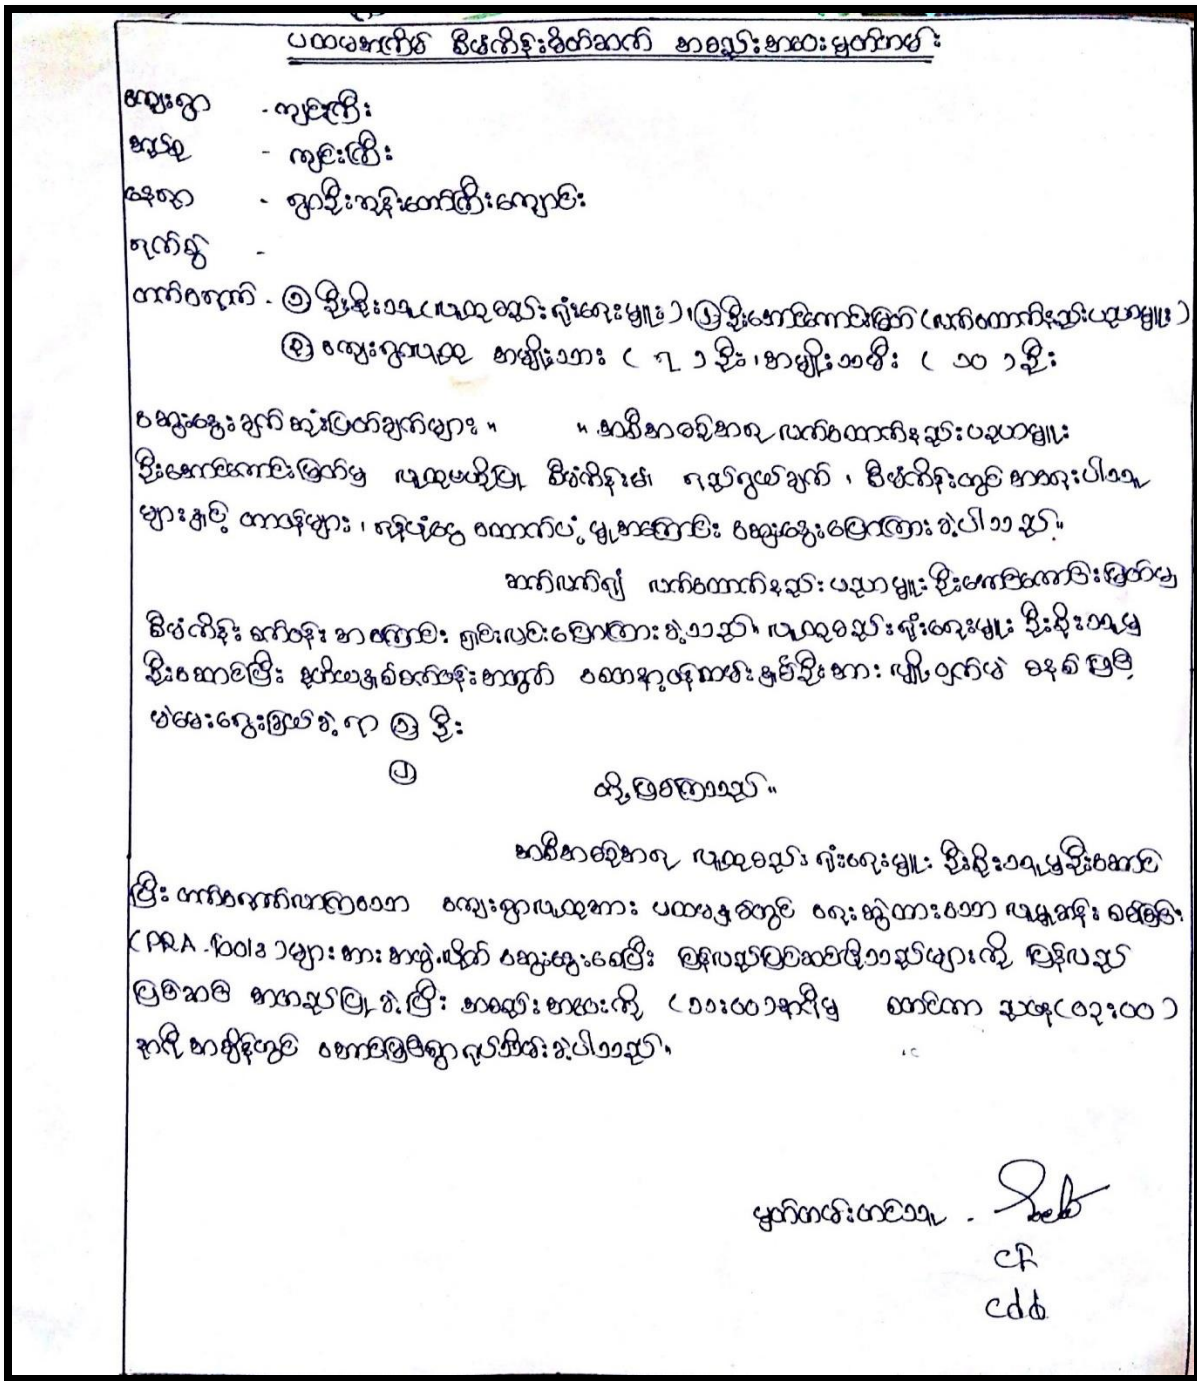 ပထမအကြိမ် စီမံကိန်းမိတ်ဆက် အစည်းအဝေးမှတ်တမ်း
ကျေးရွာ - ကျင်းကြီး
အုပ်စု - ကျင်းကြီး
နေရာ - ရွာဦးဘုန်းတော်ကြီးကျောင်း
ရက်စွဲ -
တက်ရောက် - ၁ ဦးစိုးသူ (လူထုစည်းရုံးရေးမှူး) ၊ ၂ ဦးအောင်ကောင်းမြတ် (လက်ထောက်နည်းပညာမှူး)
၃ ကျေးရွာလူထု အမျိုးသား ( ၇ ) ဦး ၊ အမျိုးသမီး ( ၁၀ ) ဦး
ဆွေးနွေးချက်ဆုံးဖြတ်ချက်များ ။ ။ အစီအစဉ်အရ လက်ထောက်နည်းပညာမှူး
ဦးအောင်ကောင်းမြတ်မှ လူထုဗဟိုပြု စီမံကိန်း၏ ရည်ရွယ်ချက် ၊ စီမံကိန်းတွင် အရေးပါသူ
များနှင့် တာဝန်များ ၊ ရန်ပုံငွေ ထောက်ပံ့မှုအကြောင်း ဆွေးနွေးပြောကြားခဲ့ပါသည်။
ဆက်လက်၍ လက်ထောက်နည်းပညာမှူး ဦးအောင်ကောင်းမြတ်မှ
စီမံကိန်း စက်ဝန်း အကြောင်း ရှင်းလင်းပြောကြားခဲ့သည်။ လူထုစည်းရုံးရေးမှူး ဦးစိုးသူမှ
ဦးဆောင်ပြီး ဒုတိယနှစ်စက်ဝန်းအတွက် စေတနာ့ဝန်ထမ်းနှစ်ဦးအား လျှို့ဝှက်မဲ စနစ်ဖြင့်
မဲပေးရွေးချယ်ခဲ့ရာ ၁ ဦး
၂
တို့ဖြစ်ကြသည်။
အစီအစဉ်အရ လူထုစည်းရုံးရေးမှူး ဦးစိုးသူမှဦးဆောင်
ပြီး တက်ရောက်လာကြသော ကျေးရွာလူထုအား ပထမနှစ်တွင် ရေးဆွဲထားသော လူမှုဆန်းစစ်ခြင်း
(PRA-Tools) များအား အဖွဲ့လိုက် ဆွေးနွေးစေပြီး ပြန်လည်ပြင်ဆင်လိုသည်များကို ပြန်လည်
ပြင်ဆင် အတည်ပြုခဲ့ပြီး အစည်းအဝေးကို (၁၁:၀၀)နာရီမှ (၀၃:၀၀)
နာရီ အချိန်တွင် အောင်မြင်စွာရုပ်သိမ်းခဲ့ပါသည်။
မှတ်တမ်းတင်သူ -
CF
CDD